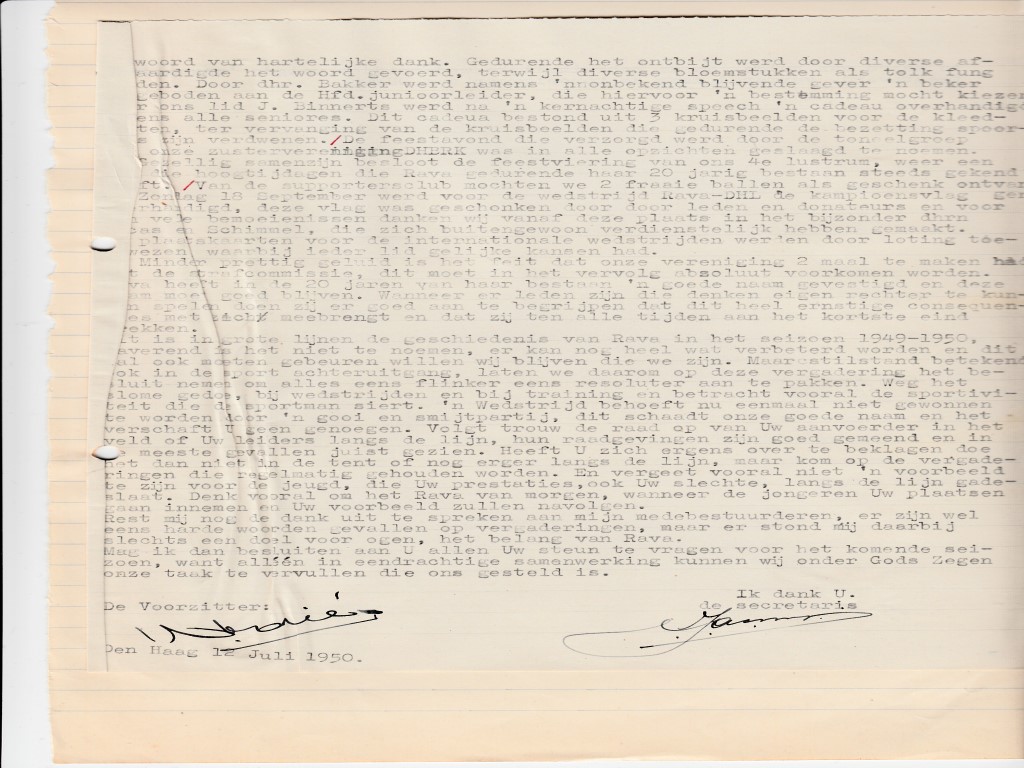 woord van hartelijke dank. Gedurende het ontbijt werd door diverse af-
aardigde het woord gevoerd, terwijl diverse bloemstukken als tolk fung
den. Door dhr. Bakker werd namens 'nnonbekend blijvende gever 'n beker
geboden aan de Hfd.juniorleider, die hiervoor 'n bestemming mocht kiezen
r ons lid J. Binnerts werd na 'n kernachtige speech 'n cadeau overhandigd
ens alle seniores. Dit cadeua bestond uit 3 kruisbeelden voor de kleed-
ten, ter vervanging van de kruisbeelden die gedurende de bezetting spoor-
s zijn verdwenen. /De feestavond die verzorgd werd door de toneelgroep
onze zusterverenigingDHERK was in alle opzichten geslaagd te noemen.
Gezellig samenzijn besloot de feestviering van ons 4e lustrum, weer een
die hoogtijdagen die Rava gedurende haar 20 jarig bestaan steeds gekend
ft. /Van de supportersclub mochten we 2 fraaie ballen als geschenk ontvan
Zondag 18 September werd voor de wedstrijd Rava-DHL de kampioensvlag gen
rhuldigd, deze vlag was geschonken door door leden en donateurs en voor
n vele bemoeienissen danken wij vanaf deze plaats in het bijzonder dhrn
bas en Schimmel, die zich buitengewoon verdienstelijk hebben gemaakt.
plaatskaarten voor de internationale wedstrijden werden door loting toe-
wezen waarbij ieder lid gelijke kansen had.
Minder prettig geluid is het feit dat onze vereniging 2 maal te maken had
t de strafcommissie, dit moet in het vervolg absoluut voorkomen worden.
va heeft in de 20 jaren van haar bestaan 'n goede naam gevestigd en deze
am moet goed blijven. Wanneer er leden zijn die denken eigen rechter te kun-
n spelen doen zij er goed aan te begrijpen dat dit heel ernstige consequen-
es met zich meebrengt en dat zij ten alle tijden aan het kortste eind
rekken.
it is ingrote lijnen de geschiedenis van Rava in het seizoen 1949-1950,
averend is het niet te noemen, er kan nog heel wat verbeterd worden en dit
al ook moeten gebeuren willen wij blijven die we zijn. Maar stilstand betekend
ook in de sport achteruitgang, laten we daarom op deze vergadering het be-
sluit nemen om alles eens flinker eens resoluter aan te pakken. Weg het
slome gedoe, bij wedstrijden en bij training en betracht vooral de sportivi-
teit die de sportman siert. 'n Wedstrijd behoeft nu eenmaal niet gewonnen
te worden door 'n gooi en smijtpartij, dit schaadt onze goede naam en het
verschaft U geen genoegen. Volgt trouw de raad op van Uw aanvoerder in het
veld of Uw leiders langs de lijn, hun raadgevingen zijn goed gemeend en in
de meeste gevallen juist gezien. Heeft U zich ergens over te beklagen doe
het dan niet in de tent of nog erger langs de lijn, maar kom op de vergade-
ringen die regelmatig gehouden worden. En vergeet vooral niet 'n voorbeeld
te zijn voor de jeugd, die Uw prestaties,ook Uw slechte, langs de lijn gade-
slaat. Denk vooral om het Rava van morgen, wanneer de jongeren Uw plaatsen
gaan innemen en Uw voorbeeld zullen navolgen.
Rest mij nog de dank uit te spreken aan mijn medebestuurderen, er zijn wel
eens harde woorden gevallen op vergaderingen, maar er stond mij daarbij
slechts een doel voor ogen, het belang van Rava.
Mag ik dan besluiten aan U allen Uw steun te vragen voor het komende sei-
zoen, want alléén in eendrachtige samenwerking kunnen wij onder Gods Zegen
onze taak te vervullen die ons gesteld is.
Ik dank U.
De Voorzitter: de secretaris
Den Haag 12 Juli 1950.